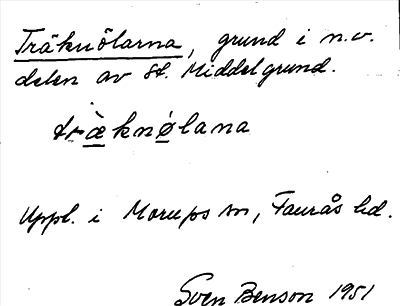 Träknölarna, grund i n.v.
delen av St. Middelgrund.
træknølana
Uppl. i Morups sn, Faurås hd.
Sven Benson 1951